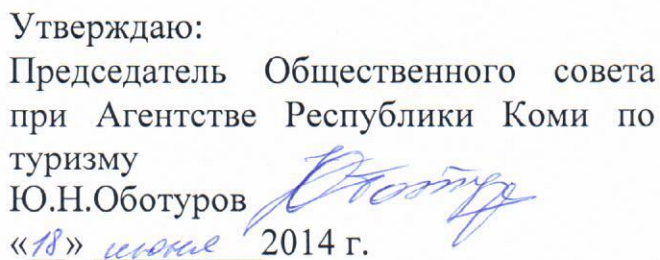 Утверждаю:
Председатель Общественного совета
при Агентстве Республики Коми по
туризму
Ю.Н.Оботуров
«18» июня 2014 г.